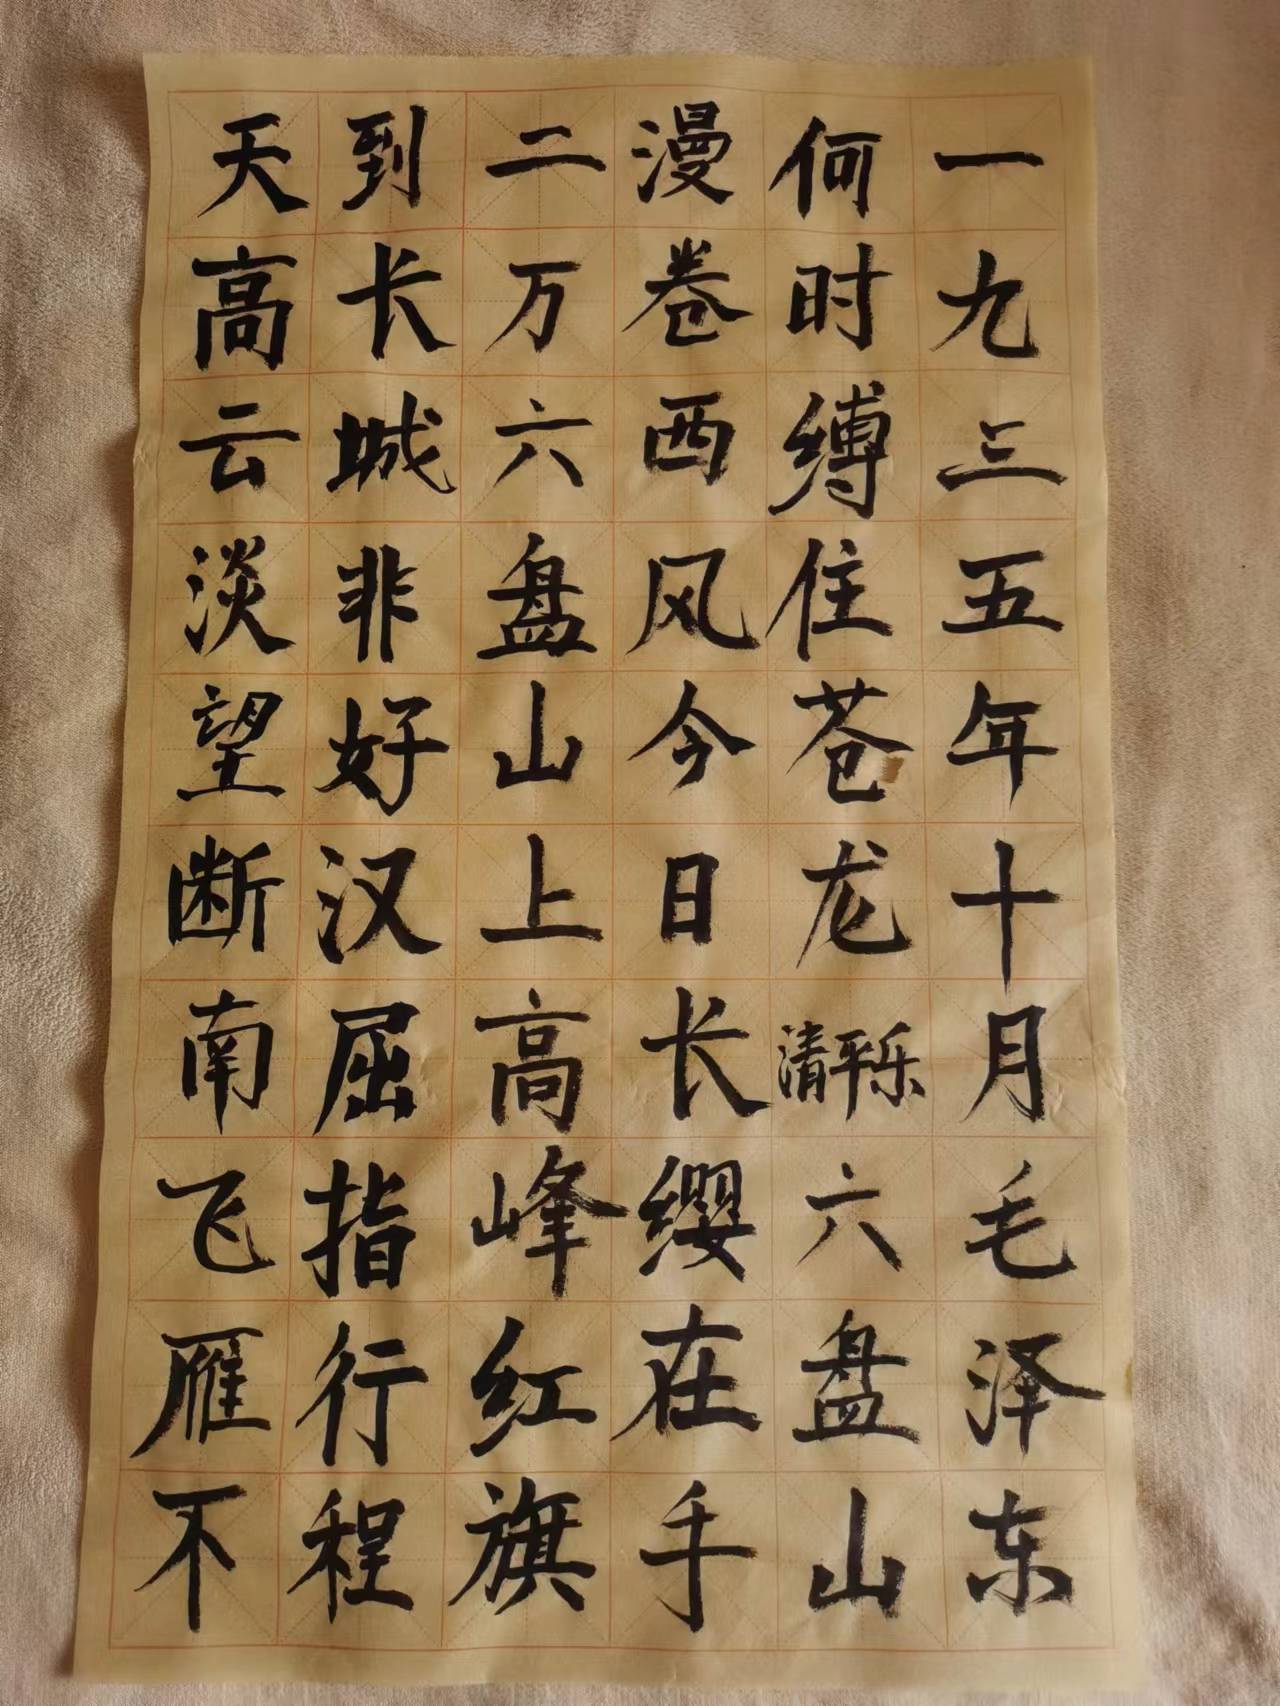 天高云淡望断南飞雁不
到长城非好汉屈指行程
二万六盘山上高峰红旗
漫卷西风今日长缨在手
何时缚住苍龙清平乐六盘山
一九三五年十月毛泽东